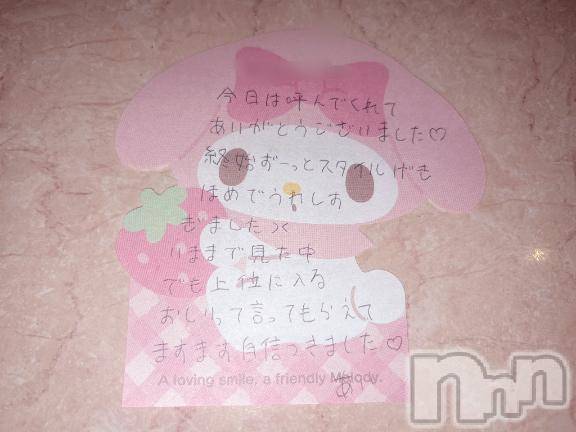 今日は呼んでくれて
ありがとうございました♡
終始ずーっとスタイルげも
ほめでうれしお
ぎましたっ
いままで見た中
でも上位に入る
おしりって言ってもらえて
ますます自信つきました♡
A loving smile, a friendly Melody.
あ
nnn